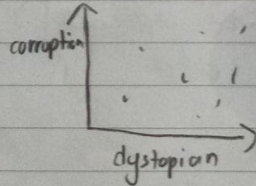 corruption
dystopian